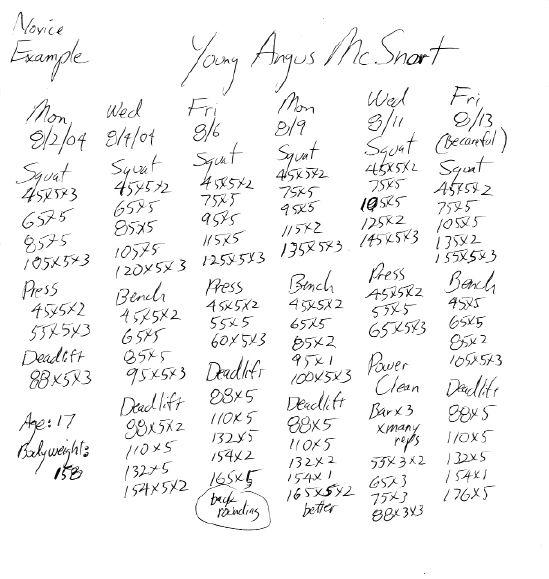 Novice
Example
Young Angus McSnort
Mon
8/2/04
Squat
45x5x3
65x5
85x5
105x5x3
Press
45x5x2
55x5x3
Deadlift
88x5x3
Age: 17
Bodyweight:
158
Wed
8/4/04
Squat
45x5x2
65x5
85x5
105x5
120x5x3
Bench
45x5x2
65x5
85x5
95x5x3
Deadlift
88x5x2
110x5
132x5
154x5x2
Fri
8/6
Squat
45x5x2
75x5
95x5
115x5
125x5x3
Press
45x5x2
55x5
60x5x3
Deadlift
88x5
110x5
132x5
154x2
165x5
back
rounding
Mon
8/9
Squat
45x5x2
75x5
95x5
115x2
135x5x3
Bench
45x5x2
65x5
85x2
95x1
100x5x3
Deadlift
88x5
110x5
132x2
154x1
165x5x2
better
Wed
8/11
Squat
45x5x2
75x5
105x5
125x2
145x5x3
Press
45x5x2
55x5
65x5x3
Power
Clean
Bar x3
x many
reps
55x3x2
65x3
75x3
88x3x3
Fri
8/13
(Be careful)
Squat
45x5x2
75x5
105x5
135x2
155x5x3
Bench
45x5
65x5
85x2
105x5x3
Deadlift
88x5
110x5
132x5
154x1
176x5